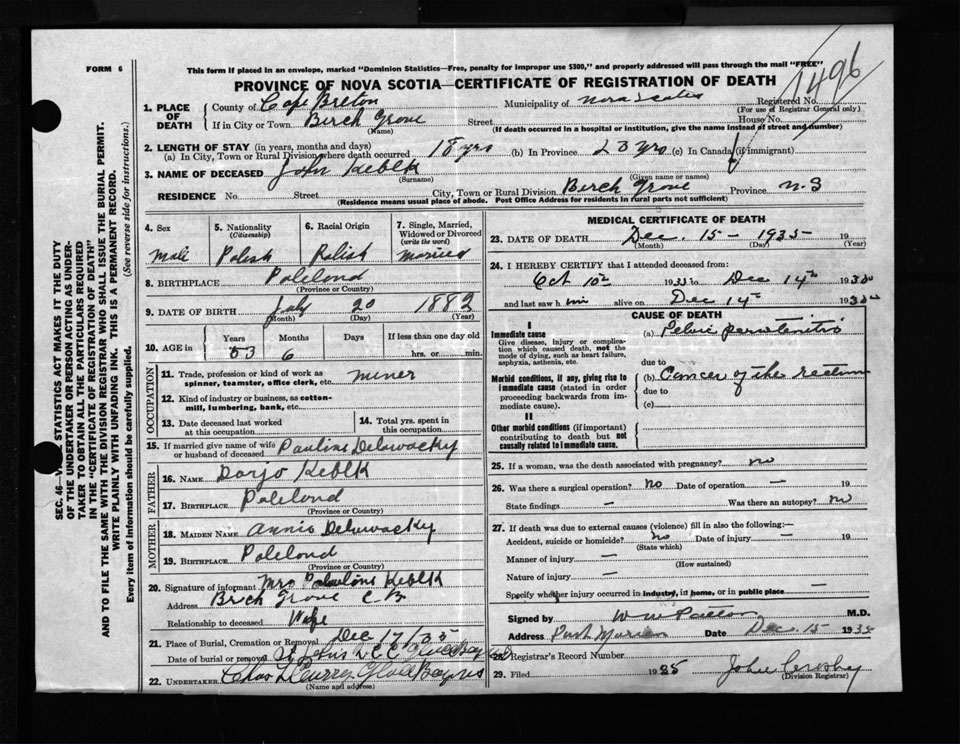 FORM 6
This form if placed in an envelope, marked "Dominion Statistics—Free, penalty for improper use $300," and properly addressed will pass through the mail "FREE"
PROVINCE OF NOVA SCOTIA—CERTIFICATE OF REGISTRATION OF DEATH
1496
1. PLACE OF DEATH
County of Cape Breton Municipality of Nova Scotia Registered No.
(For use of Registrar General only)
If in City or Town Birch Grove Street House No.
(Name) (If death occurred in a hospital or institution, give the name instead of street and number)
2. LENGTH OF STAY (in years, months and days)
(a) In City, Town or Rural Division where death occurred 18 yrs (b) In Province 23 yrs (c) In Canada (if immigrant)
3. NAME OF DECEASED John Keblk
(Surname) (Given name or names)
RESIDENCE No. Street City, Town or Rural Division Birch Grove Province N.S
(Residence means usual place of abode. Post Office Address for residents in rural parts not sufficient)
4. Sex Male
5. Nationality (Citizenship) Polish
6. Racial Origin Polish
7. Single, Married, Widowed or Divorced (write the word) Married
8. BIRTHPLACE Polelond
(Province or Country)
9. DATE OF BIRTH July 20 1882
(Month) (Day) (Year)
10. AGE in Years 53 Months 6 Days If less than one day old hrs. or min.
OCCUPATION
11. Trade, profession or kind of work as spinner, teamster, office clerk, etc. miner
12. Kind of industry or business, as cotton-mill, lumbering, bank, etc.
13. Date deceased last worked at this occupation
14. Total yrs. spent in this occupation
15. If married give name of wife or husband of deceased Pauline Deluwacky
FATHER
16. NAME Keblk
17. BIRTHPLACE Polelond
(Province or Country)
MOTHER
18. MAIDEN NAME Annie Deluwacky
19. BIRTHPLACE Polelond
(Province or Country)
20. Signature of informant Mrs Keblk
Address Birch Grove C.B.
Relationship to deceased Wife
21. Place of Burial, Cremation or Removal Dec 17/35
Date of burial or removal St
22. UNDERTAKER Chas
(Name and address)
MEDICAL CERTIFICATE OF DEATH
23. DATE OF DEATH Dec. 15 - 1935 19
(Month) (Day) (Year)
24. I HEREBY CERTIFY that I attended deceased from:
Oct 10th 1935 to Dec 14th 1935
and last saw him alive on Dec 14th 1935
CAUSE OF DEATH
I
Immediate cause
Give disease, injury or complication which caused death, not the mode of dying, such as heart failure, asphyxia, asthenia, etc.
(a) Pelvic peritonitis
due to
Morbid conditions, if any, giving rise to immediate cause (stated in order proceeding backwards from immediate cause).
(b) Cancer of the rectum
due to
(c)
II
Other morbid conditions (if important) contributing to death but not causally related to immediate cause.
25. If a woman, was the death associated with pregnancy? no
26. Was there a surgical operation? No Date of operation — 19
State findings — Was there an autopsy? no
27. If death was due to external causes (violence) fill in also the following:—
Accident, suicide or homicide? no Date of injury — 19
(State which)
Manner of injury —
(How sustained)
Nature of injury —
Specify whether injury occurred in industry, in home, or in public place —
Signed by W. W. M.D.
Address Port Morien Date Dec. 15 1935
28. Registrar's Record Number
29. Filed 1935 John Crosby
(Division Registrar)
SEC. 46—VITAL STATISTICS ACT MAKES IT THE DUTY
OF THE UNDERTAKER OR PERSON ACTING AS UNDER-
TAKER TO OBTAIN ALL THE PARTICULARS REQUIRED
IN THE "CERTIFICATE OF REGISTRATION OF DEATH"
AND TO FILE THE SAME WITH THE DIVISION REGISTRAR WHO SHALL ISSUE THE BURIAL PERMIT.
WRITE PLAINLY WITH UNFADING INK. THIS IS A PERMANENT RECORD.
Every item of information should be carefully supplied. (See reverse side for instructions.)